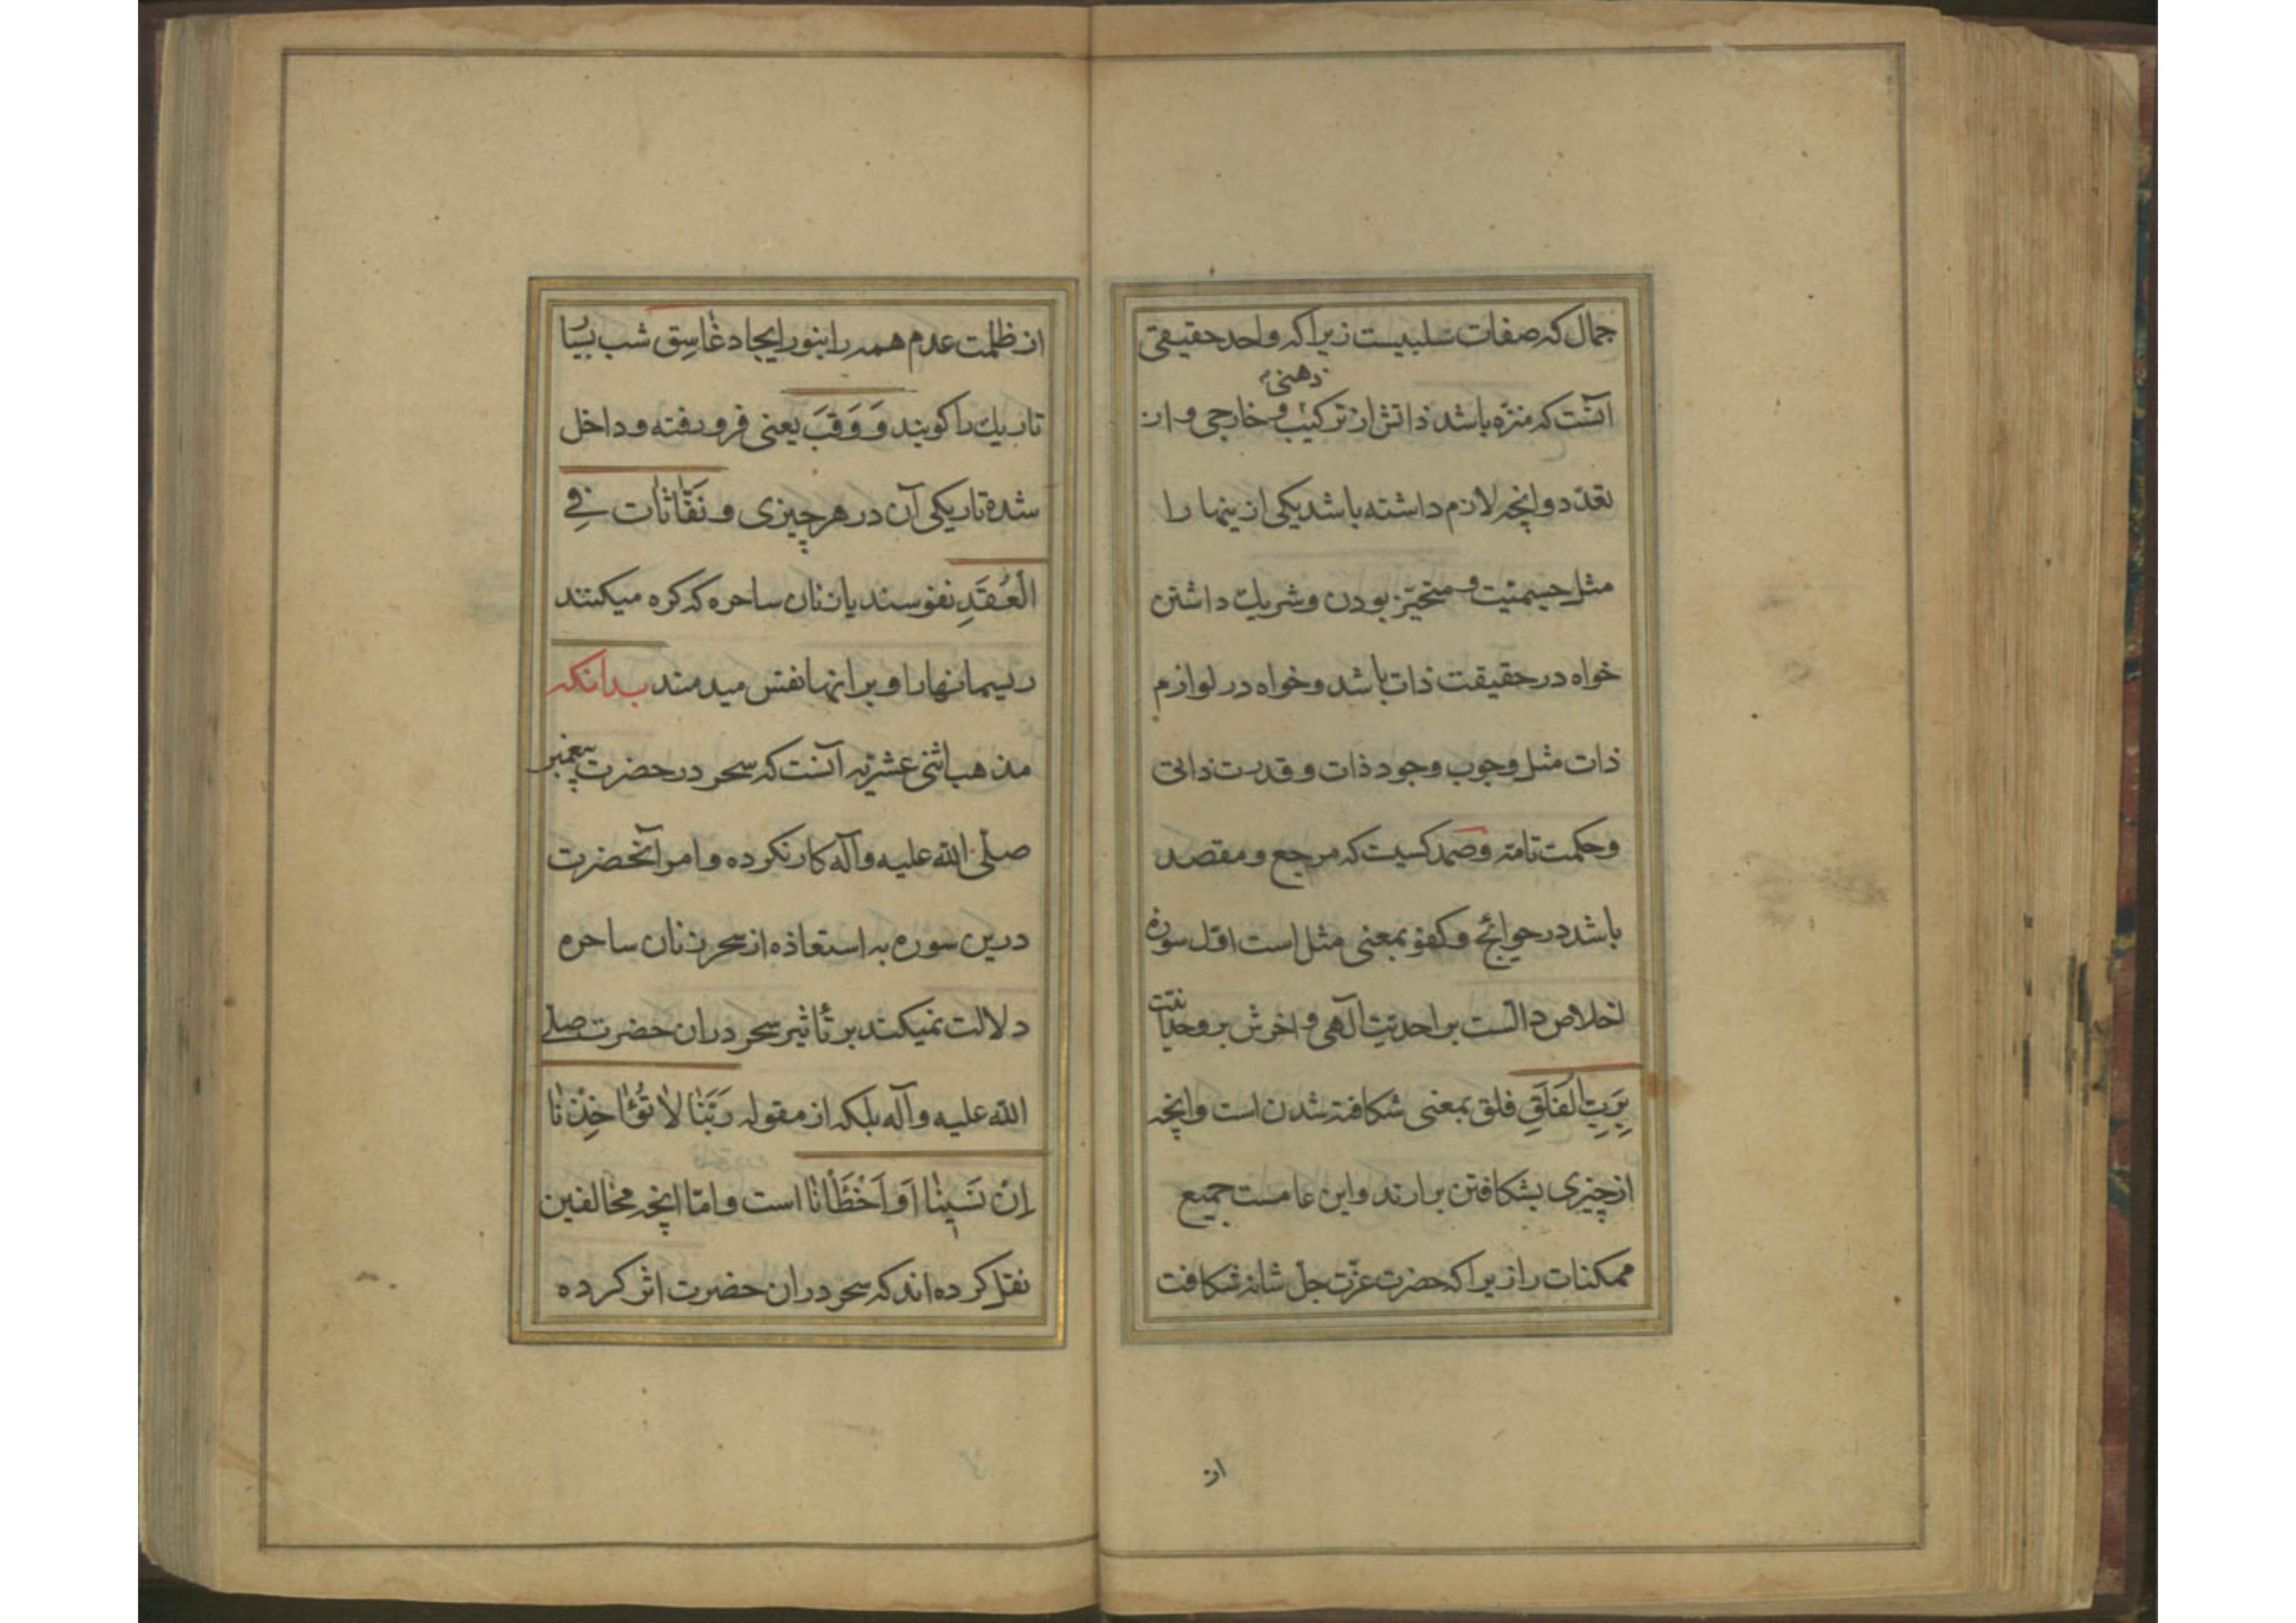 جمال که صفات سلبیست زیرا که واحد حقیقی
ذهنی
آنست که منزه باشد ذاتش از ترکیب و خارجی و از
تعدد و آنچه لازم داشته باشد یکی از اینها را
مثل جسمیّت و متحیّز بودن و شریک داشتن
خواه در حقیقت ذات باشد و خواه در لوازم
ذات مثل وجوب وجود ذات و قدرت ذاتی
و حکمت تامه و صمد کسیست که مرجع و مقصد
باشد در حوایج و کفو بمعنی مثل است اوّل سوره
اخلاص دالست بر احدیّت آلهی و اخرش بر وحدانیّت
بِرَبِّ الْفَلَقِ فلق بمعنی شکافته شدن است و آنچه
از چیزی بشکافتن برارند و این عامست جمیع
ممکنات را زیرا که حضرت عزّت جلّ شانه شکافت
از
از ظلمت عدم همه را بنور ایجاد غاسِق شب بسیار
تاریک را کویند وَ وَقَبَ یعنی فرو رفته و داخل
شده تاریکی آن در هر چیزی و نَفّاثات فِی
الْعُقَدِ نفوسند یا زنان ساحره که کره میکنند
ریسمانها را و بر انها نفس میدمند بدانکه
مذهب اثنی عشریّه آنست که سحر در حضرت پیغمبر
صلّی الله علیه وآله کار نکرده و امر آنحضرت
درین سوره به استعاذه از سحر زنان ساحره
دلالت نمیکند بر تأثیر سحر دران حضرت صلی
الله علیه وآله بلکه از مقوله رَبَّنا لا تُؤاخِذْنا
اِنْ نَسینا اَو اَخْطَأنا است و امّا آنچه مخالفین
نقل کرده اند که سحر دران حضرت اثر کرده